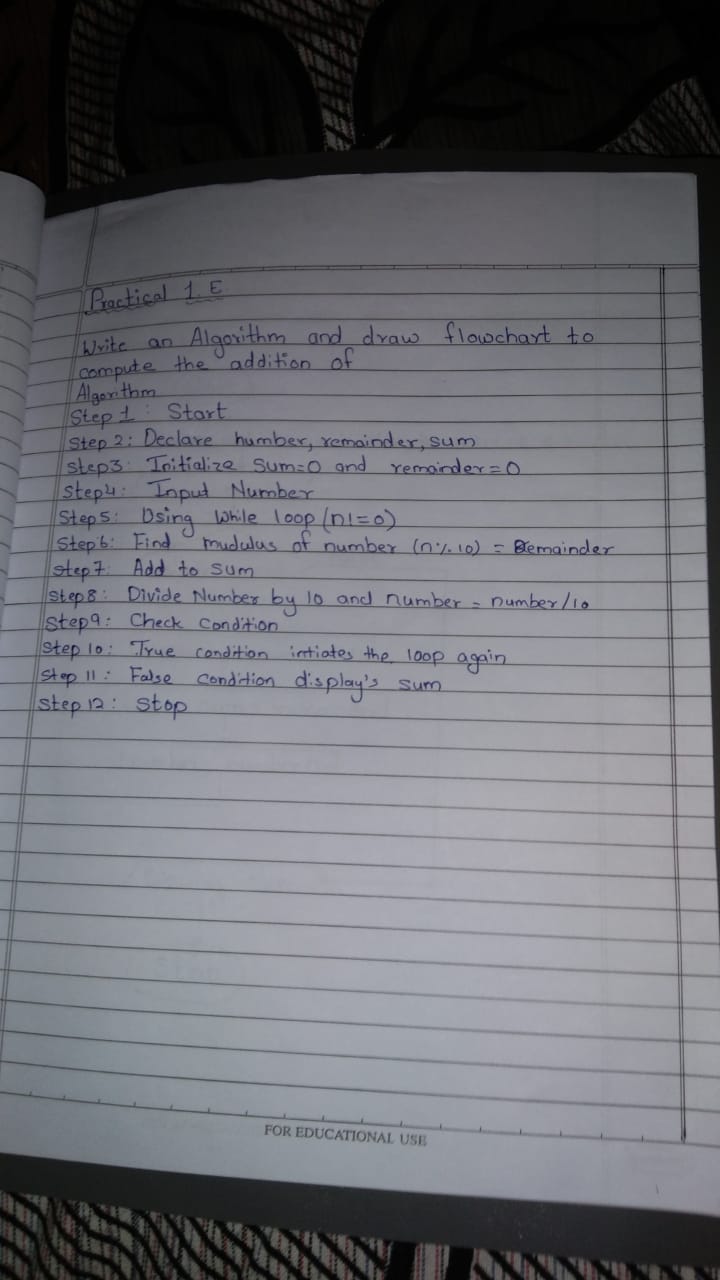 Practical 1. E
Write an Algorithm and draw flowchart to
compute the addition of
Algorithm
Step 1 : Start
Step 2: Declare humber, remainder, sum
Step3: Initialize Sum=0 and remainder=0
Step4: Input Number
Step5: Using While loop (n!=0)
Step6: Find mudulus of number (n%10) = Remainder
Step7: Add to sum
Step8: Divide Number by 10 and number = number/10
Step9: Check Condition
Step 10: True condition intiates the loop again
Step 11: False condition display's sum
Step 12: Stop
FOR EDUCATIONAL USE